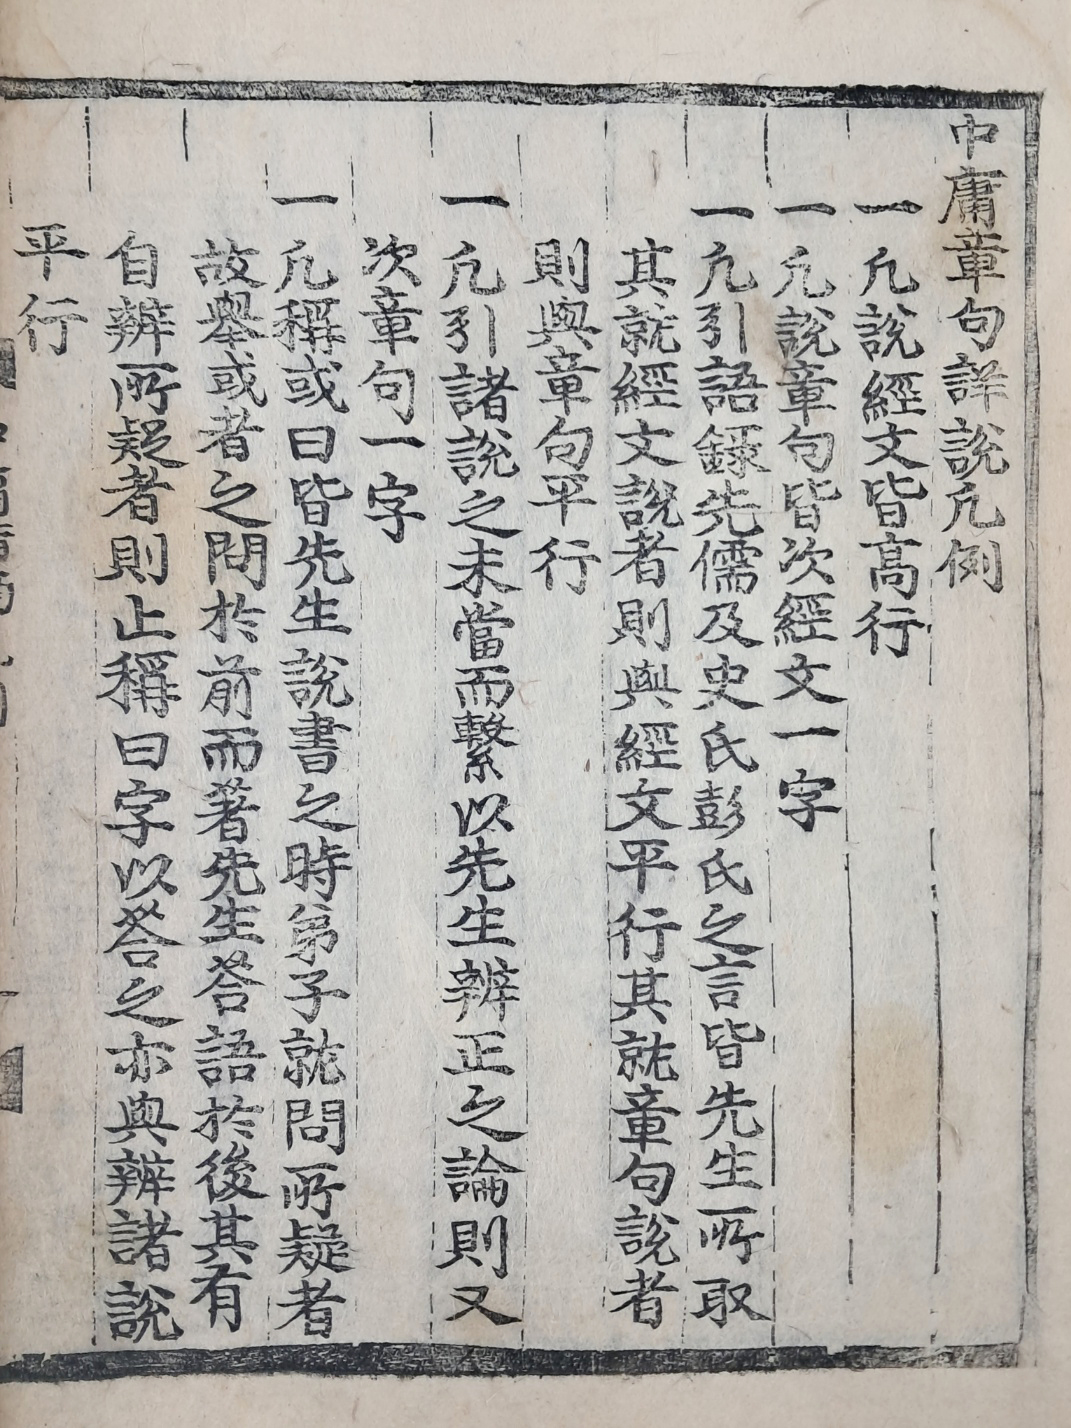 中庸章句詳說凡例
一凡說經文皆高行
一凡說章句皆次經文一字
一凡引語錄先儒及史氏彭氏之言皆先生所取
其就經文說者則與經文平行其就章句說者
則與章句平行
一凡引諸說之未當而繫以先生辨正之論則又
次章句一字
一凡稱或曰皆先生說書之時弟子就問所疑者
故舉或者之問於前而著先生答語於後其有
自辨所疑者則止稱曰字以答之亦與辨諸說
平行